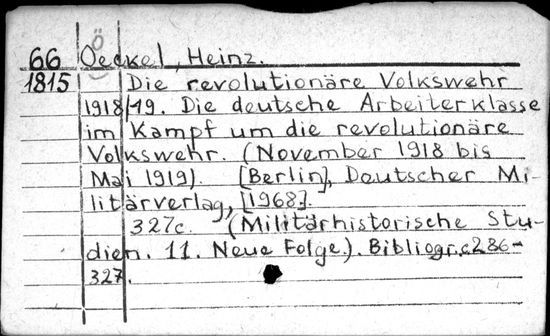 Ö
66 Oeckel, Heinz.
1815 Die revolutionäre Volkswehr
1918/19. Die deutsche Arbeiterklasse
im Kampf um die revolutionäre
Volkswehr. (November 1918 bis
Mai 1919). [Berlin], Deutscher Mi-
litärverlag, [1968].
327c. (Militärhistorische Stu-
dien. 11. Neue Folge.). Bibliogr.c286-
327.